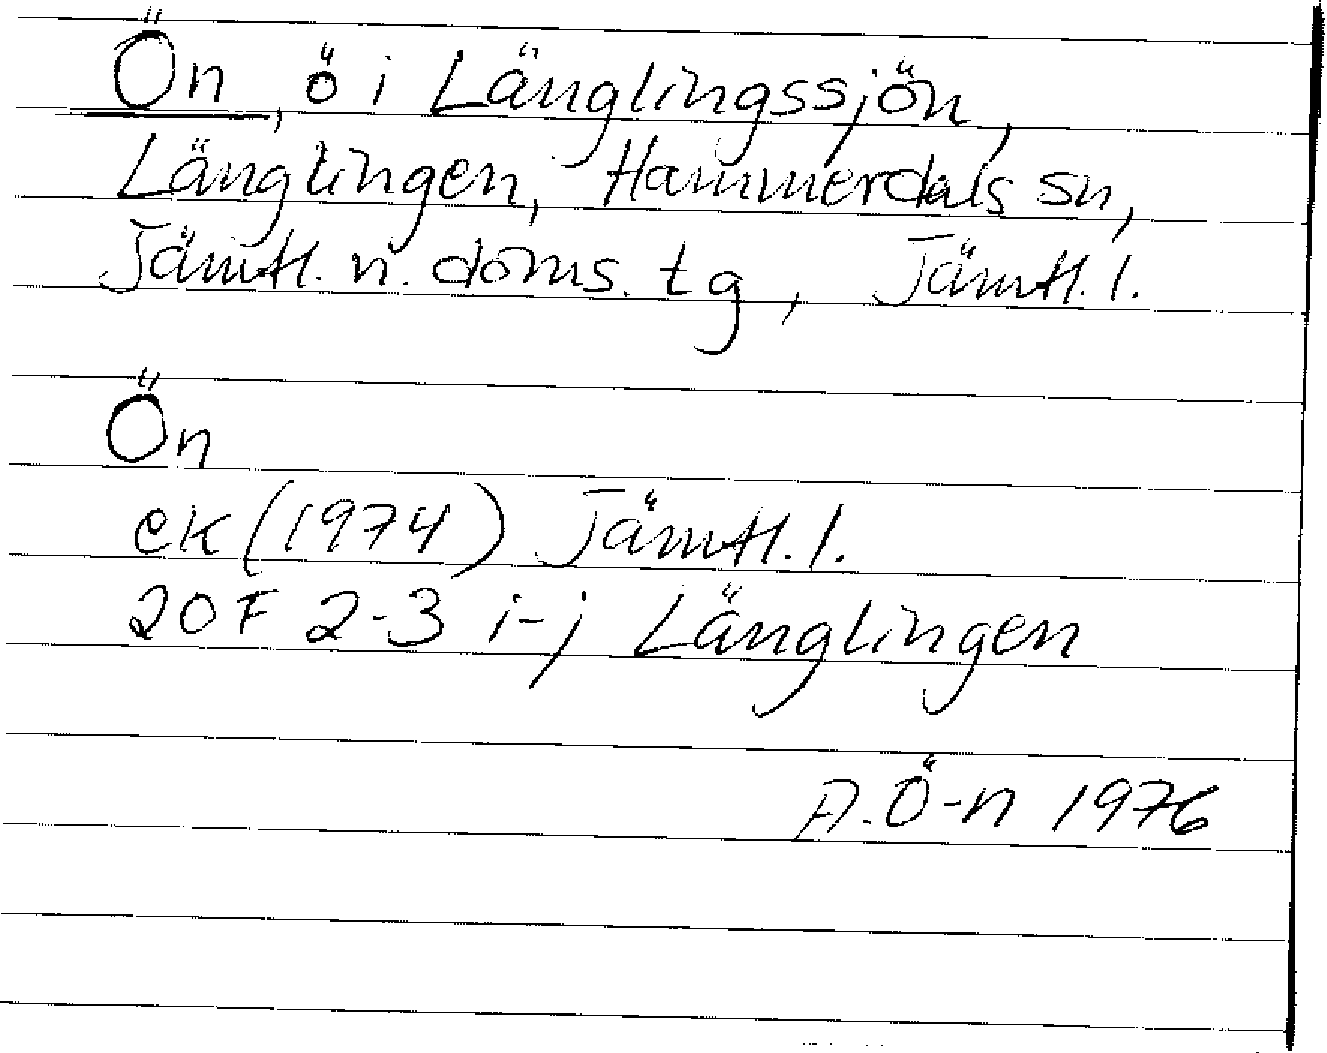 Ön, ö i Länglingssjön,
Länglingen, Hammerdals sn,
Jämtl. n. doms. tg, Jämtl. l.
Ön
ek (1974) Jämtl. l.
20F 2-3 i-j Länglingen
A. Ö-n 1976